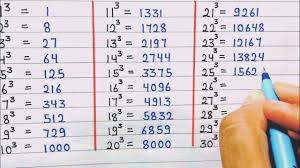 1³ = 1
2³ = 8
3³ = 27
4³ = 64
5³ = 125
6³ = 216
7³ = 343
8³ = 512
9³ = 729
10³ = 1000
11³ = 1331
12³ = 1728
13³ = 2197
14³ = 2744
15³ = 3375
16³ = 4096
17³ = 4913
18³ = 5832
19³ = 6859
20³ = 8000
21³ = 9261
22³ = 10648
23³ = 12167
24³ = 13824
25³ = 1562
26³ =
27³
28³
29³
30³